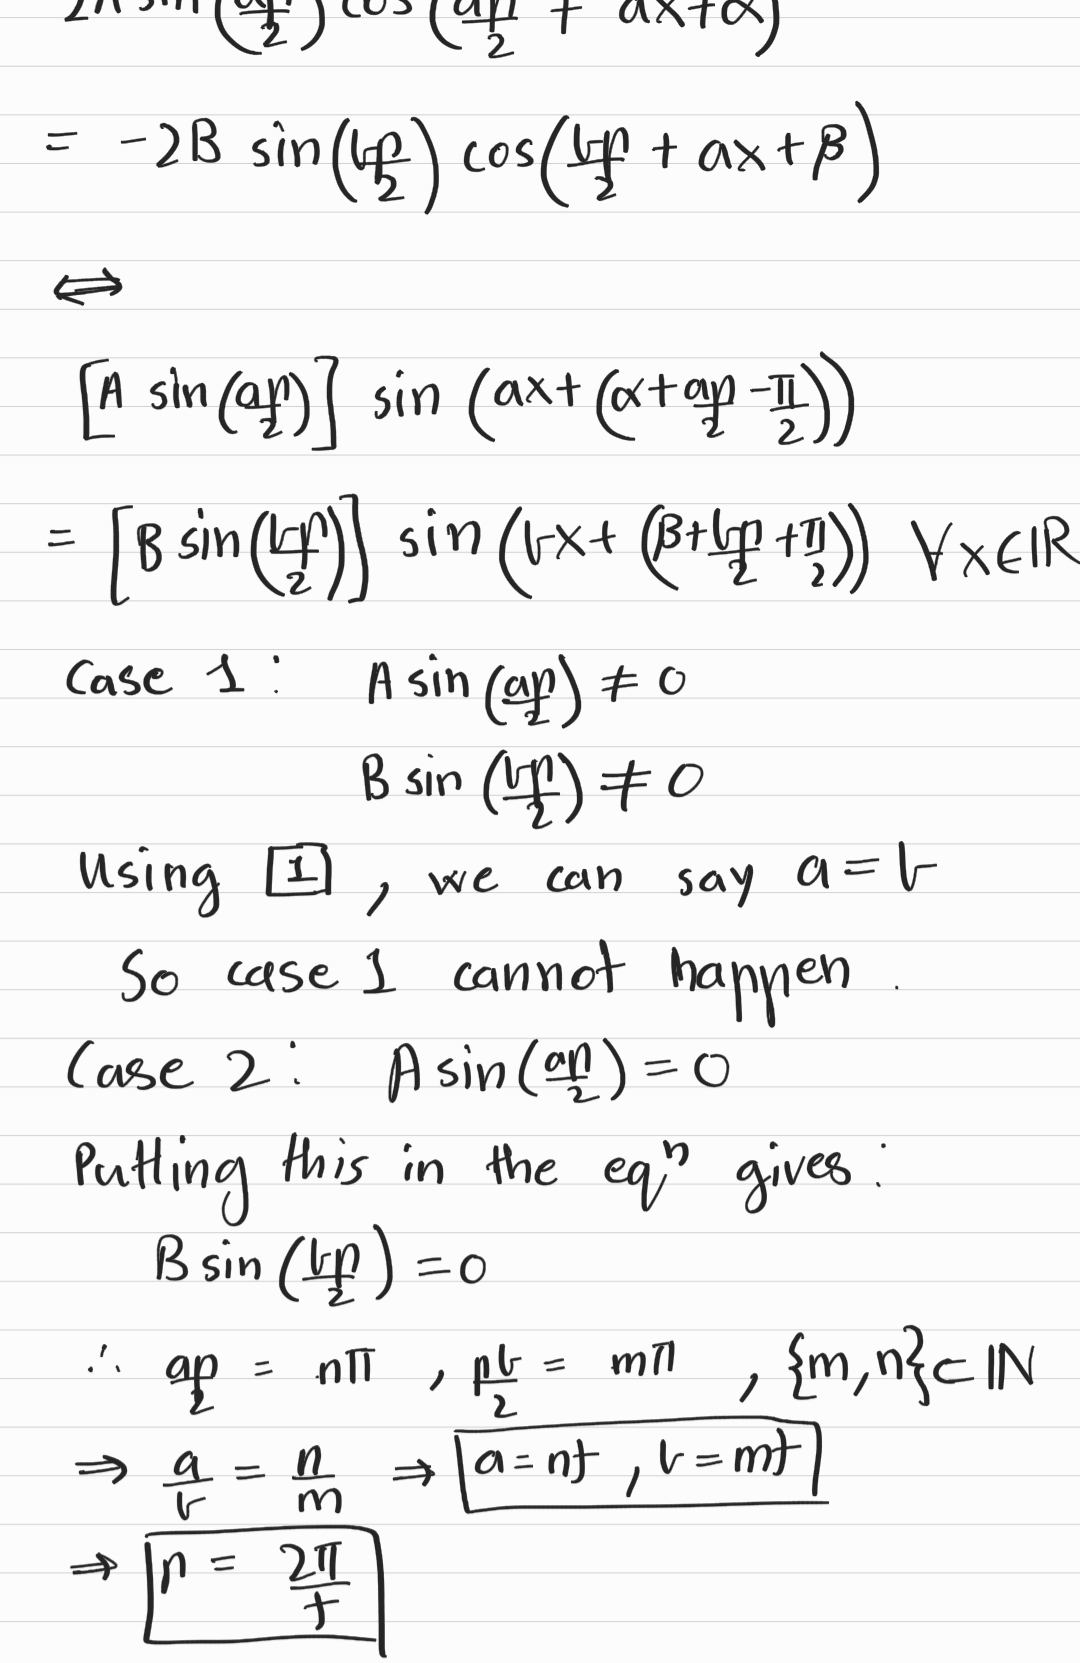 2A sin(ap/2) cos(ap/2 + ax+α)
= -2B sin(bp/2) cos(bp/2 + ax+β)
⇔
[A sin(ap/2)] sin (ax+(α+ap/2 -π/2))
= [B sin(bp/2)] sin (bx+ (β+bp/2 +π/2)) ∀x∈ℝ
Case 1 : A sin(ap/2) ≠ 0
B sin (bp/2) ≠ 0
Using [1] , we can say a = b
So case 1 cannot happen .
Case 2 : A sin(ap/2) = 0
Putting this in the eqⁿ gives :
B sin (bp/2) = 0
∴ ap/2 = nπ , pb/2 = mπ , {m,n}⊂ℕ
⇒ a/b = n/m ⇒ a = nt , b = mt
⇒ p = 2π/t